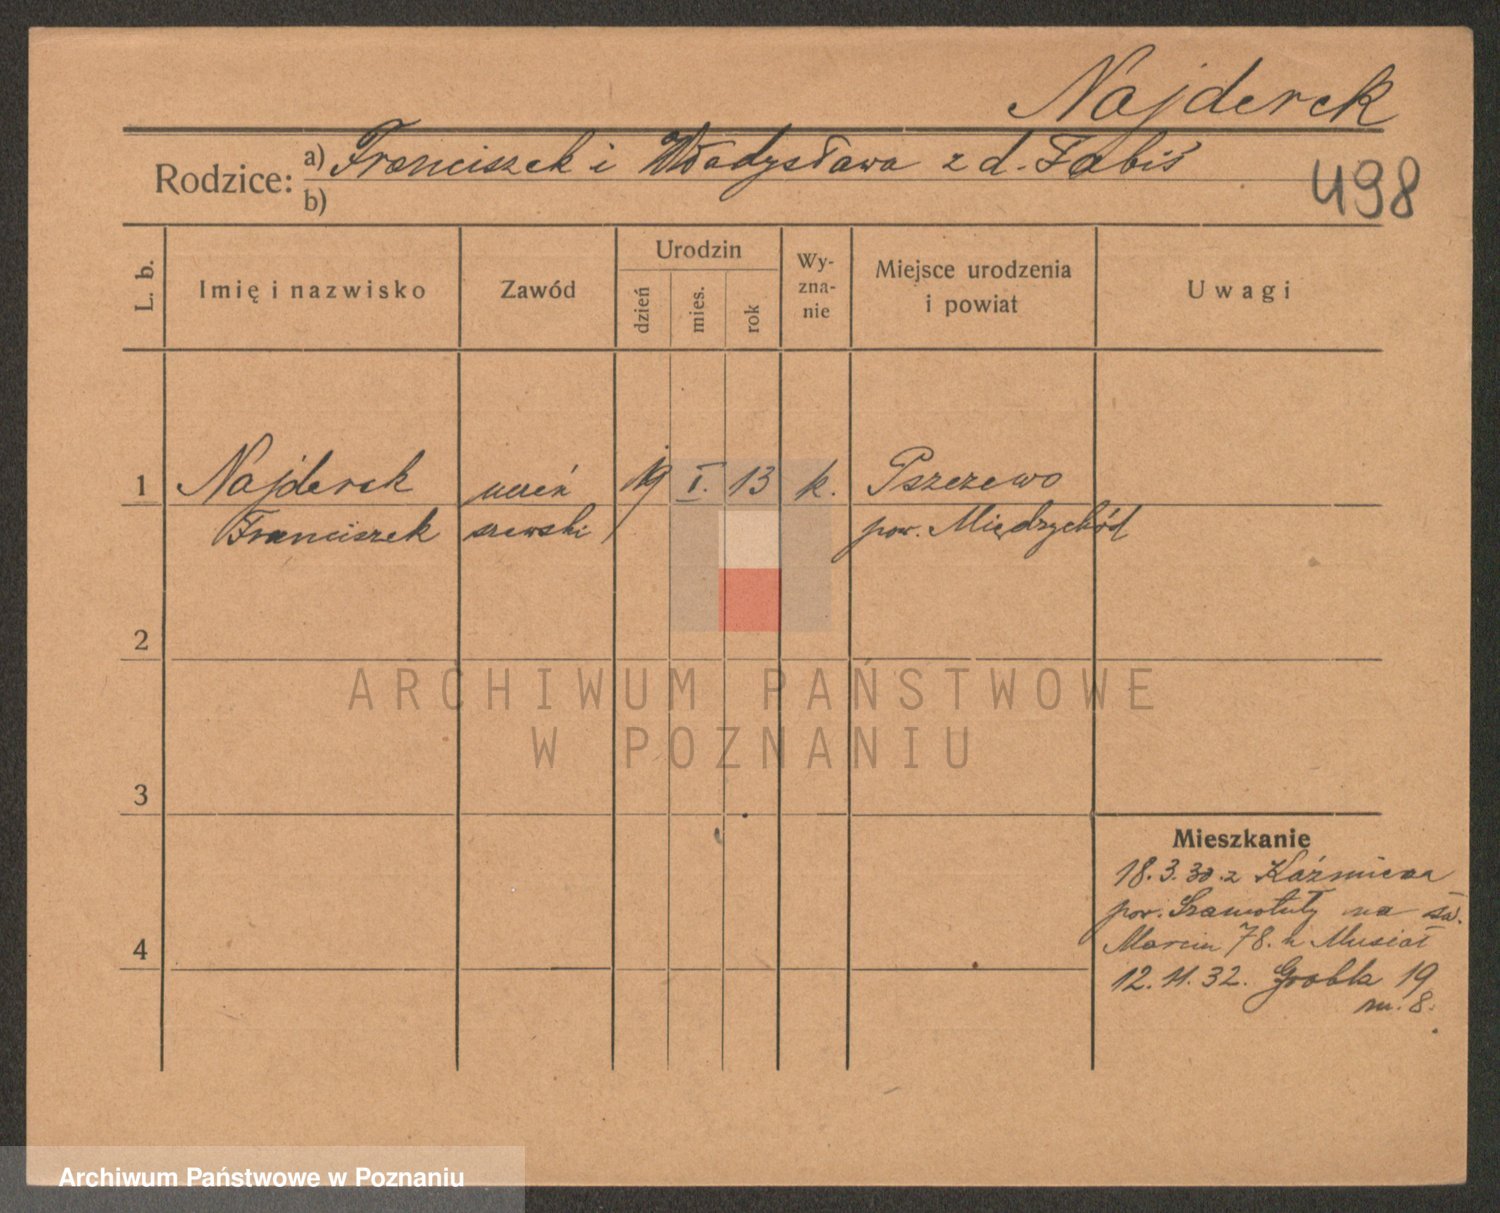 Najderek
Rodzice: a) Franciszek i Władysława z d. Fabiś
b)
498
L. b.
Imię i nazwisko
Zawód
Urodzin
dzień
mies.
rok
Wy-
zna-
nie
Miejsce urodzenia
i powiat
Uwagi
1 Najderek uczeń 19 I. 13 k. Pszczewo
Franciszek szewski pow. Międzychód
2
ARCHIWUM PAŃSTWOWE
W POZNANIU
3
Mieszkanie
18. 3. 30. z Kaźmierza
pow. Szamotuły na św.
Marcin 78. u Musiał
4
12. 11. 32. Grobla 19
m. 8.
Archiwum Państwowe w Poznaniu